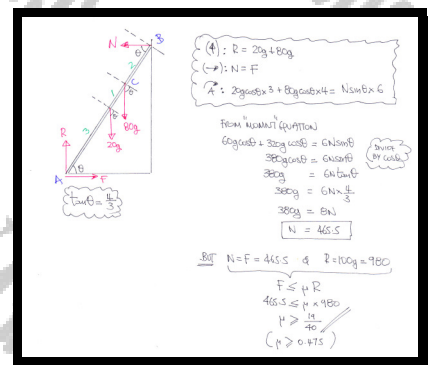 N
B
θ
2
C
1
θ
80g
3
θ
20g
R
θ
A
F
tanθ = 4/3
(↑): R = 20g+80g
(→): N = F
A: 20gcosθ×3 + 80gcosθ×4 = Nsinθ×6
FROM "MOMENT" EQUATION
60gcosθ + 320gcosθ = 6Nsinθ
380gcosθ = 6Nsinθ
DIVIDE BY cosθ
380g = 6Ntanθ
380g = 6N×4/3
380g = 8N
N = 465.5
BUT N=F = 465.5 & R=100g=980
F ≤ μR
465.5 ≤ μ×980
μ ≥ 19/40
(μ ≥ 0.475)